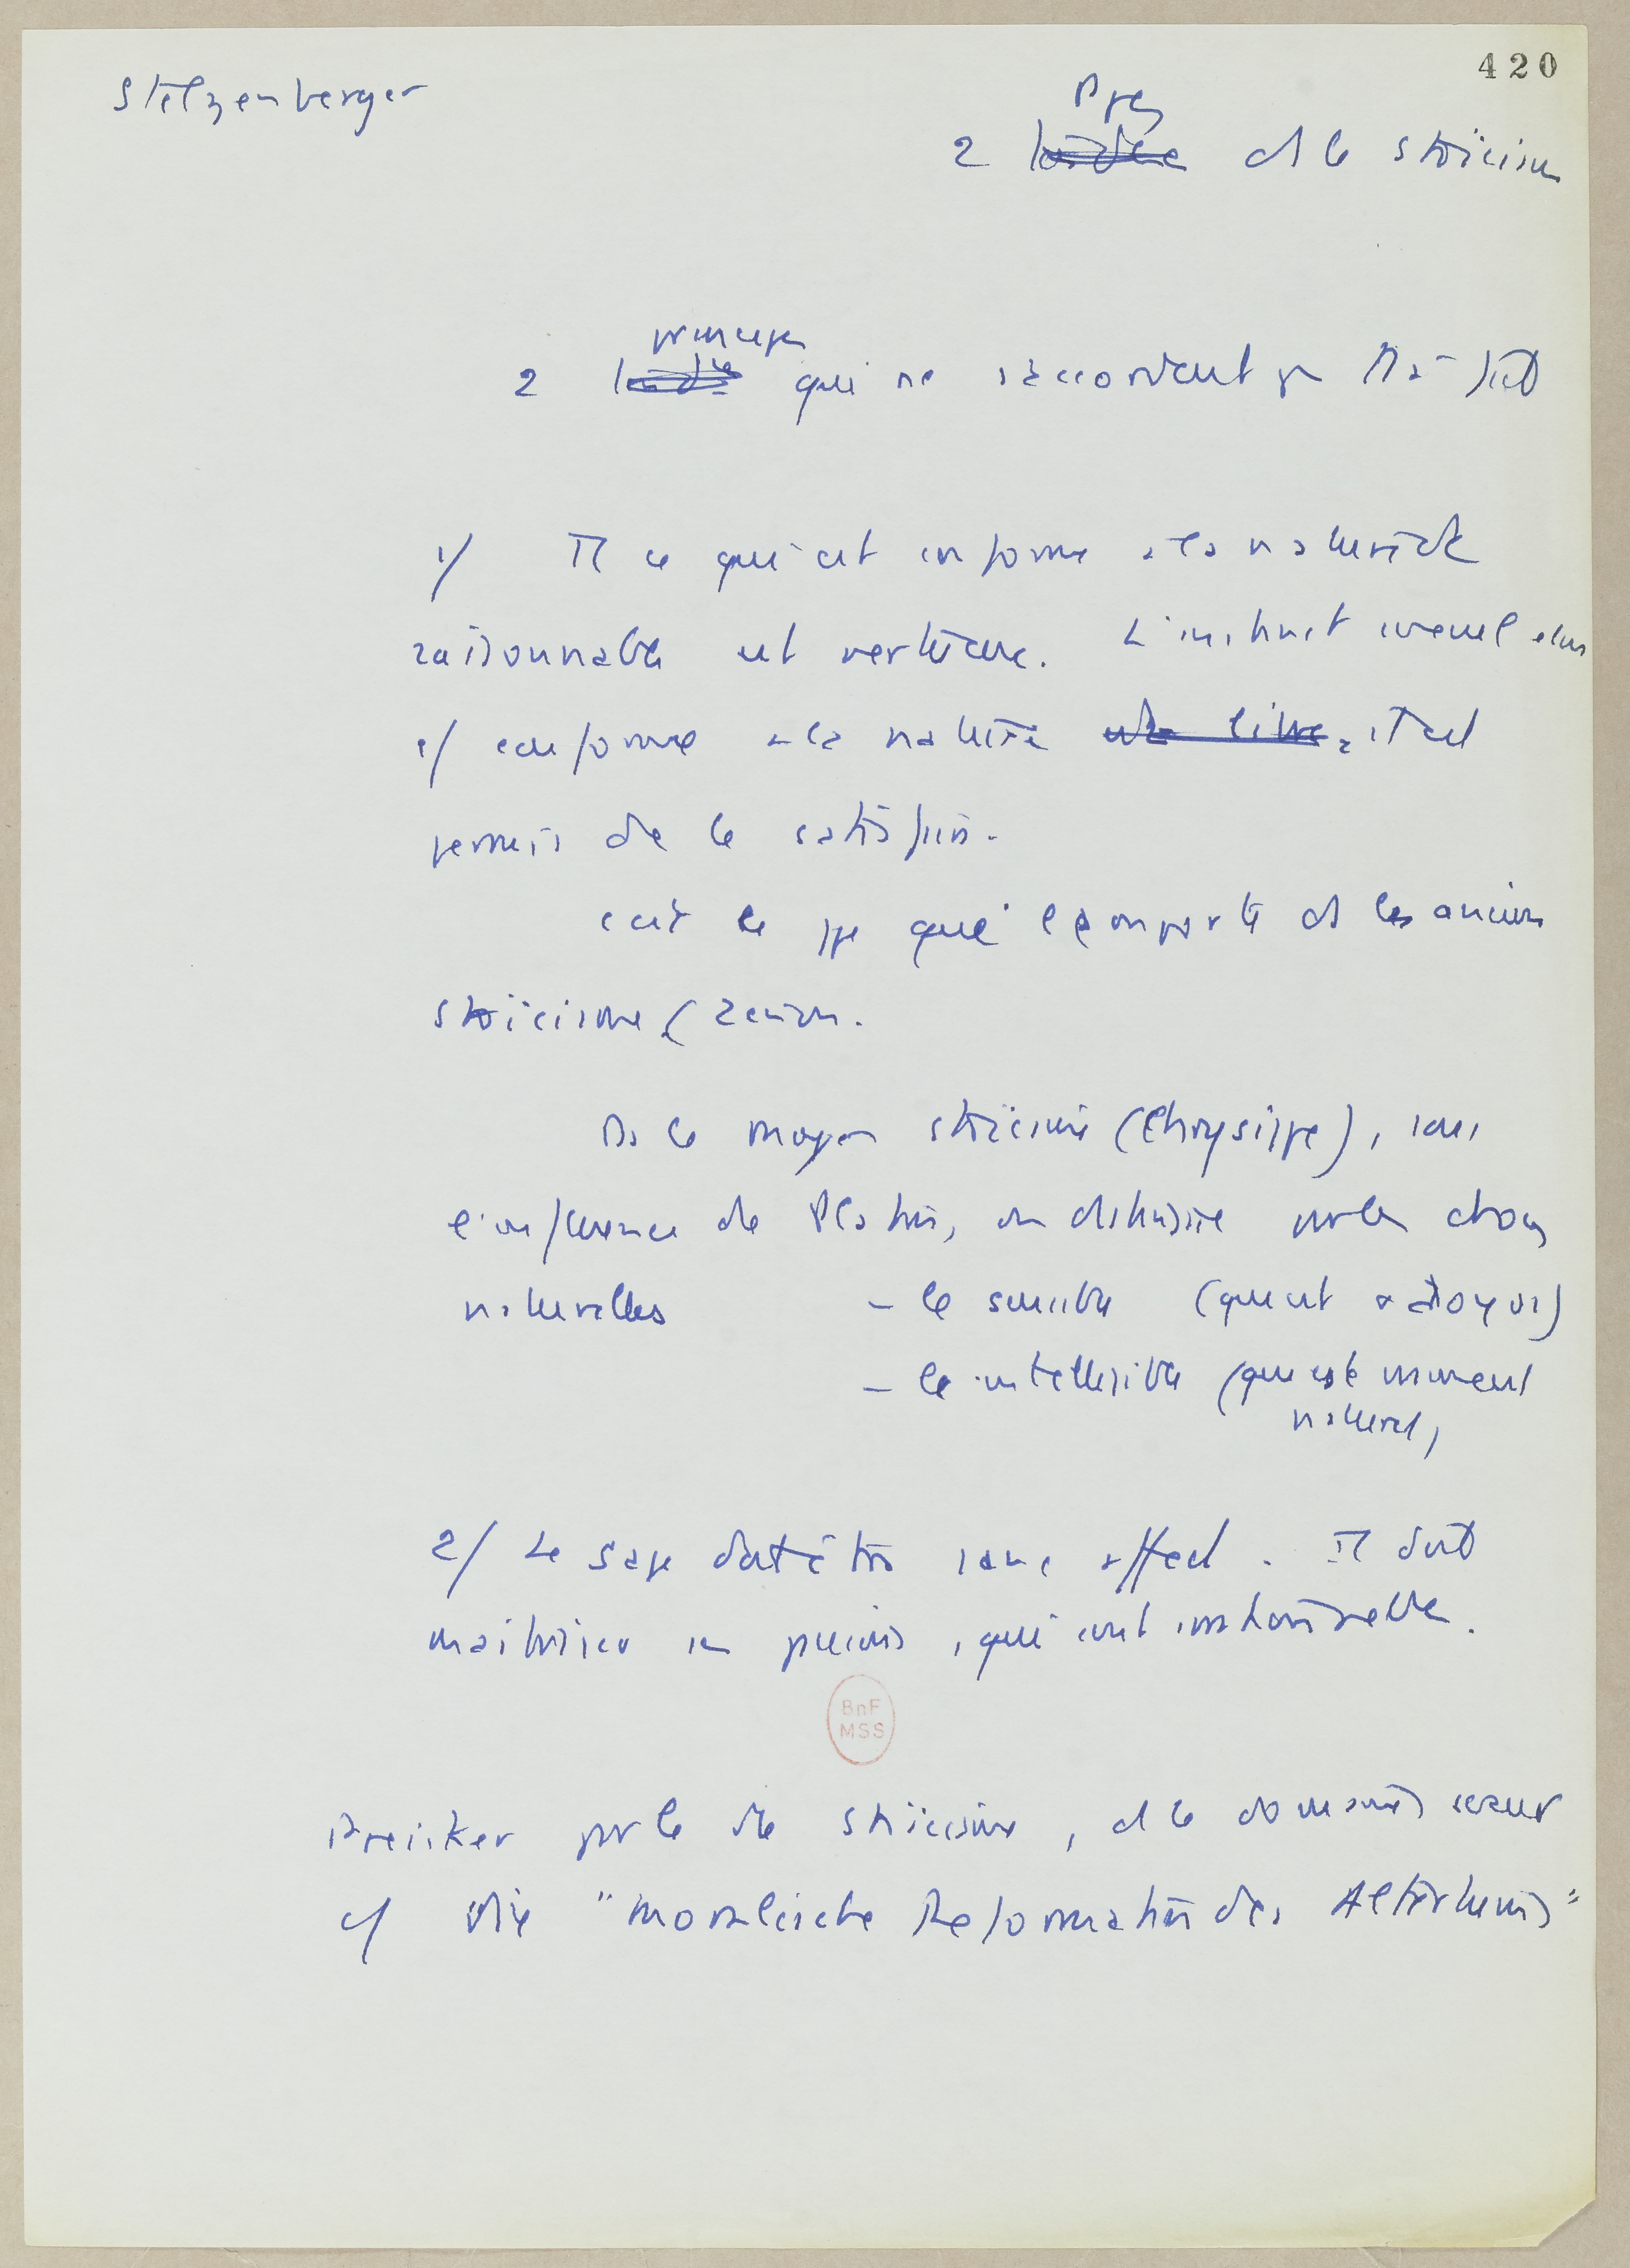 420
Stelzenberger
Ppes
2 ds le stoïcisme
principes
2 qui ne s'accordent pas
1/ Tt ce qui est conforme à la nature
raisonnable est vertueux. L'instinct sexuel étant
conforme à la nature, il est
permis de le satisfaire.
C'est le ppe qui l'emporte ds les anciens
stoïcisme (Zénon.
Ds le moyen stoïcisme (Chrysippe), sous
l'influence de Platon, on distingue les choses
naturelles - le sensible (qui est
- le intelligible (qui est vraiment
naturel)
2/ Le sage doit être sans affect. Il doit
maîtriser ses passions, qui sont
BnF
MSS
Preisker parle du stoïcisme, ds le domaine sexuel
c/ die "moralische Reformation des Altertums"